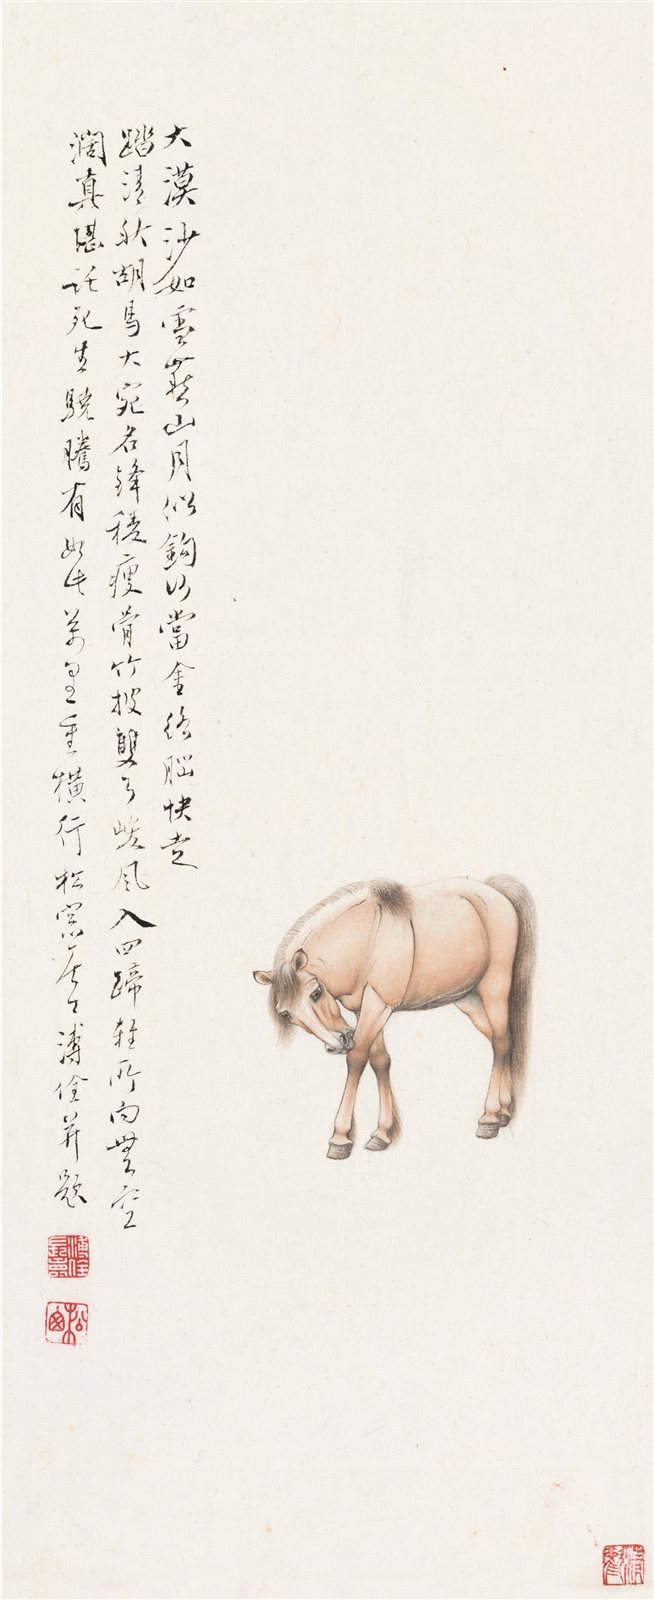 大漠沙如雪燕山月似鉤何當金絡腦快走
踏清秋胡馬大宛名鋒稜瘦骨竹披雙耳峻風入四蹄輕所向無空
濶真堪託死生驍騰有如此萬里橫行松窗居士溥佺并題
溥佺長壽
松窗